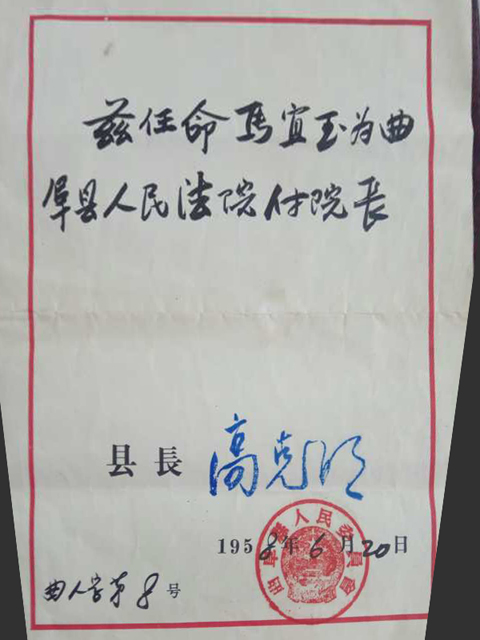 兹任命马宜玉为曲
阜县人民法院付院长
县長 高克明
1958年6月20日
曲阜县人民委员会
曲人字第8号